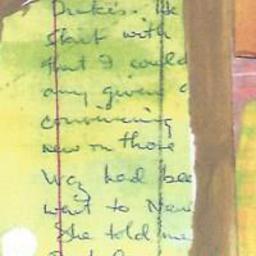 Drake's. He
start with
but I could
any given
convincing
new on those
Way had bee
went to New
She told me